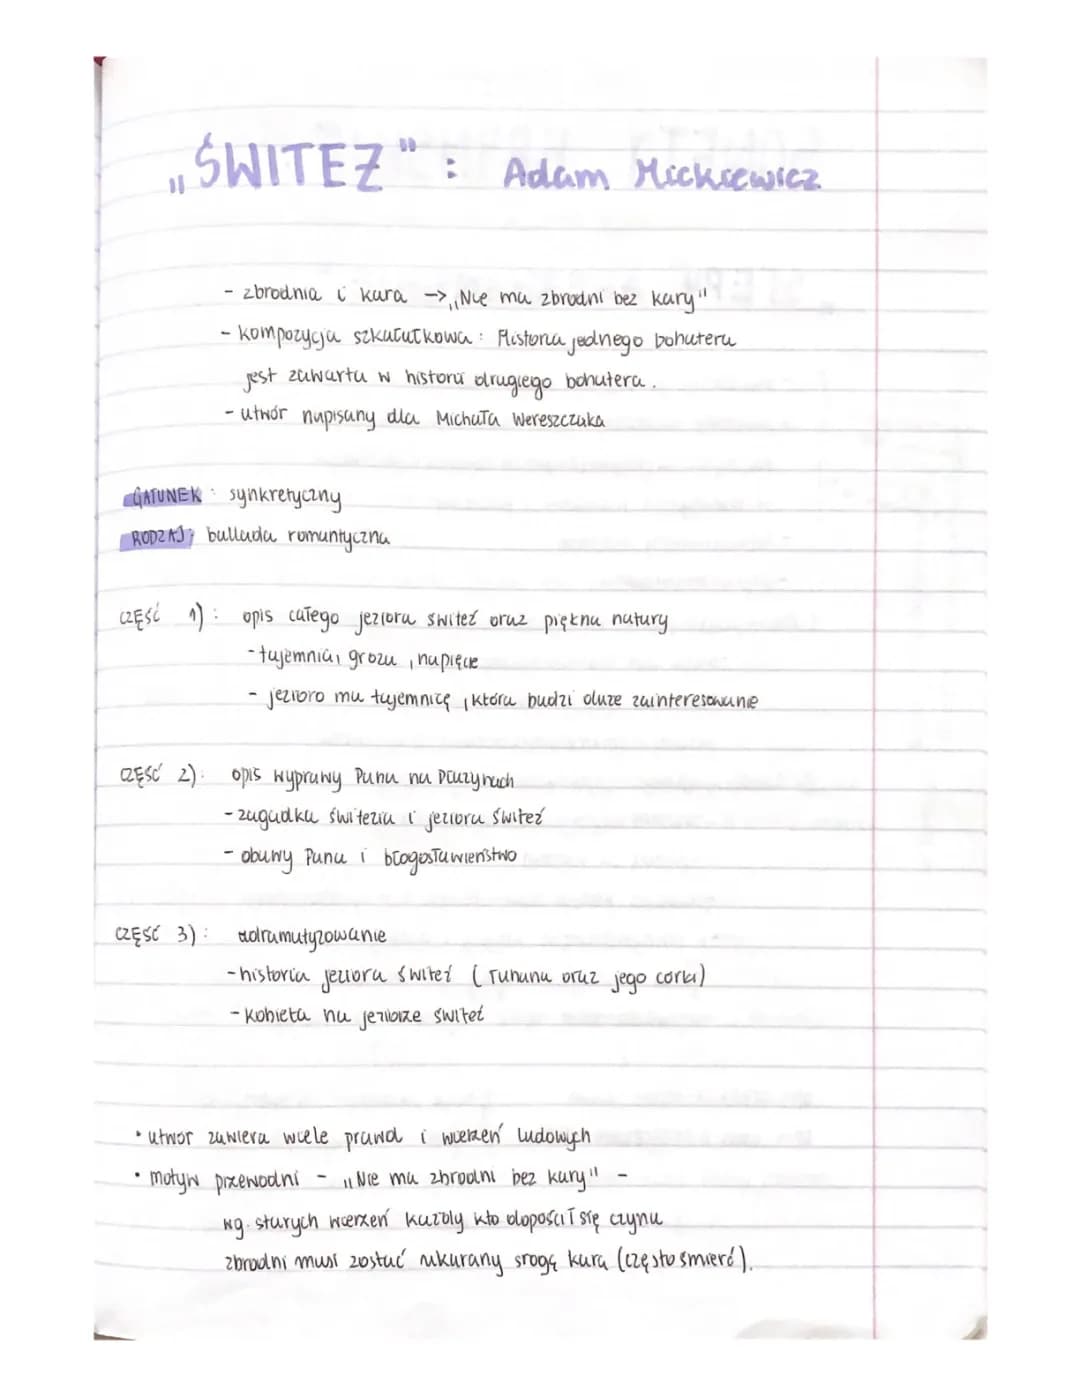 „ŚWITEŹ" : Adam Mickiewicz
- zbrodnia i kara → „Nie ma zbrodni bez kary"
- kompozycja szkatułkowa : Historia jednego bohatera
jest zawarta w historii drugiego bohatera.
- utwór napisany dla Michała Wereszczaka
GATUNEK : synkretyczny
RODZAJ : ballada romantyczna
CZĘŚĆ 1) : opis całego jeziora świteź oraz piękna natury
- tajemnica, groza, napięcie
- jezioro ma tajemnicę, która budzi duże zainteresowanie
CZĘŚĆ 2) : opis wyprawy Pana na Płużynach
- zagadka świtezia i jeziora świteź
- obawy Pana i błogosławieństwo
CZĘŚĆ 3) : udramatyzowanie
- historia jeziora świteź ( Tuhana oraz jego córki)
- kobieta na jeziorze świteź
• utwór zawiera wiele prawd i wierzeń ludowych
• motyw przewodni - „Nie ma zbrodni bez kary" -
wg. starych wierzeń każdy kto dopościł się czynu
zbrodni musi zostać ukarany srogą karą (często śmierć).